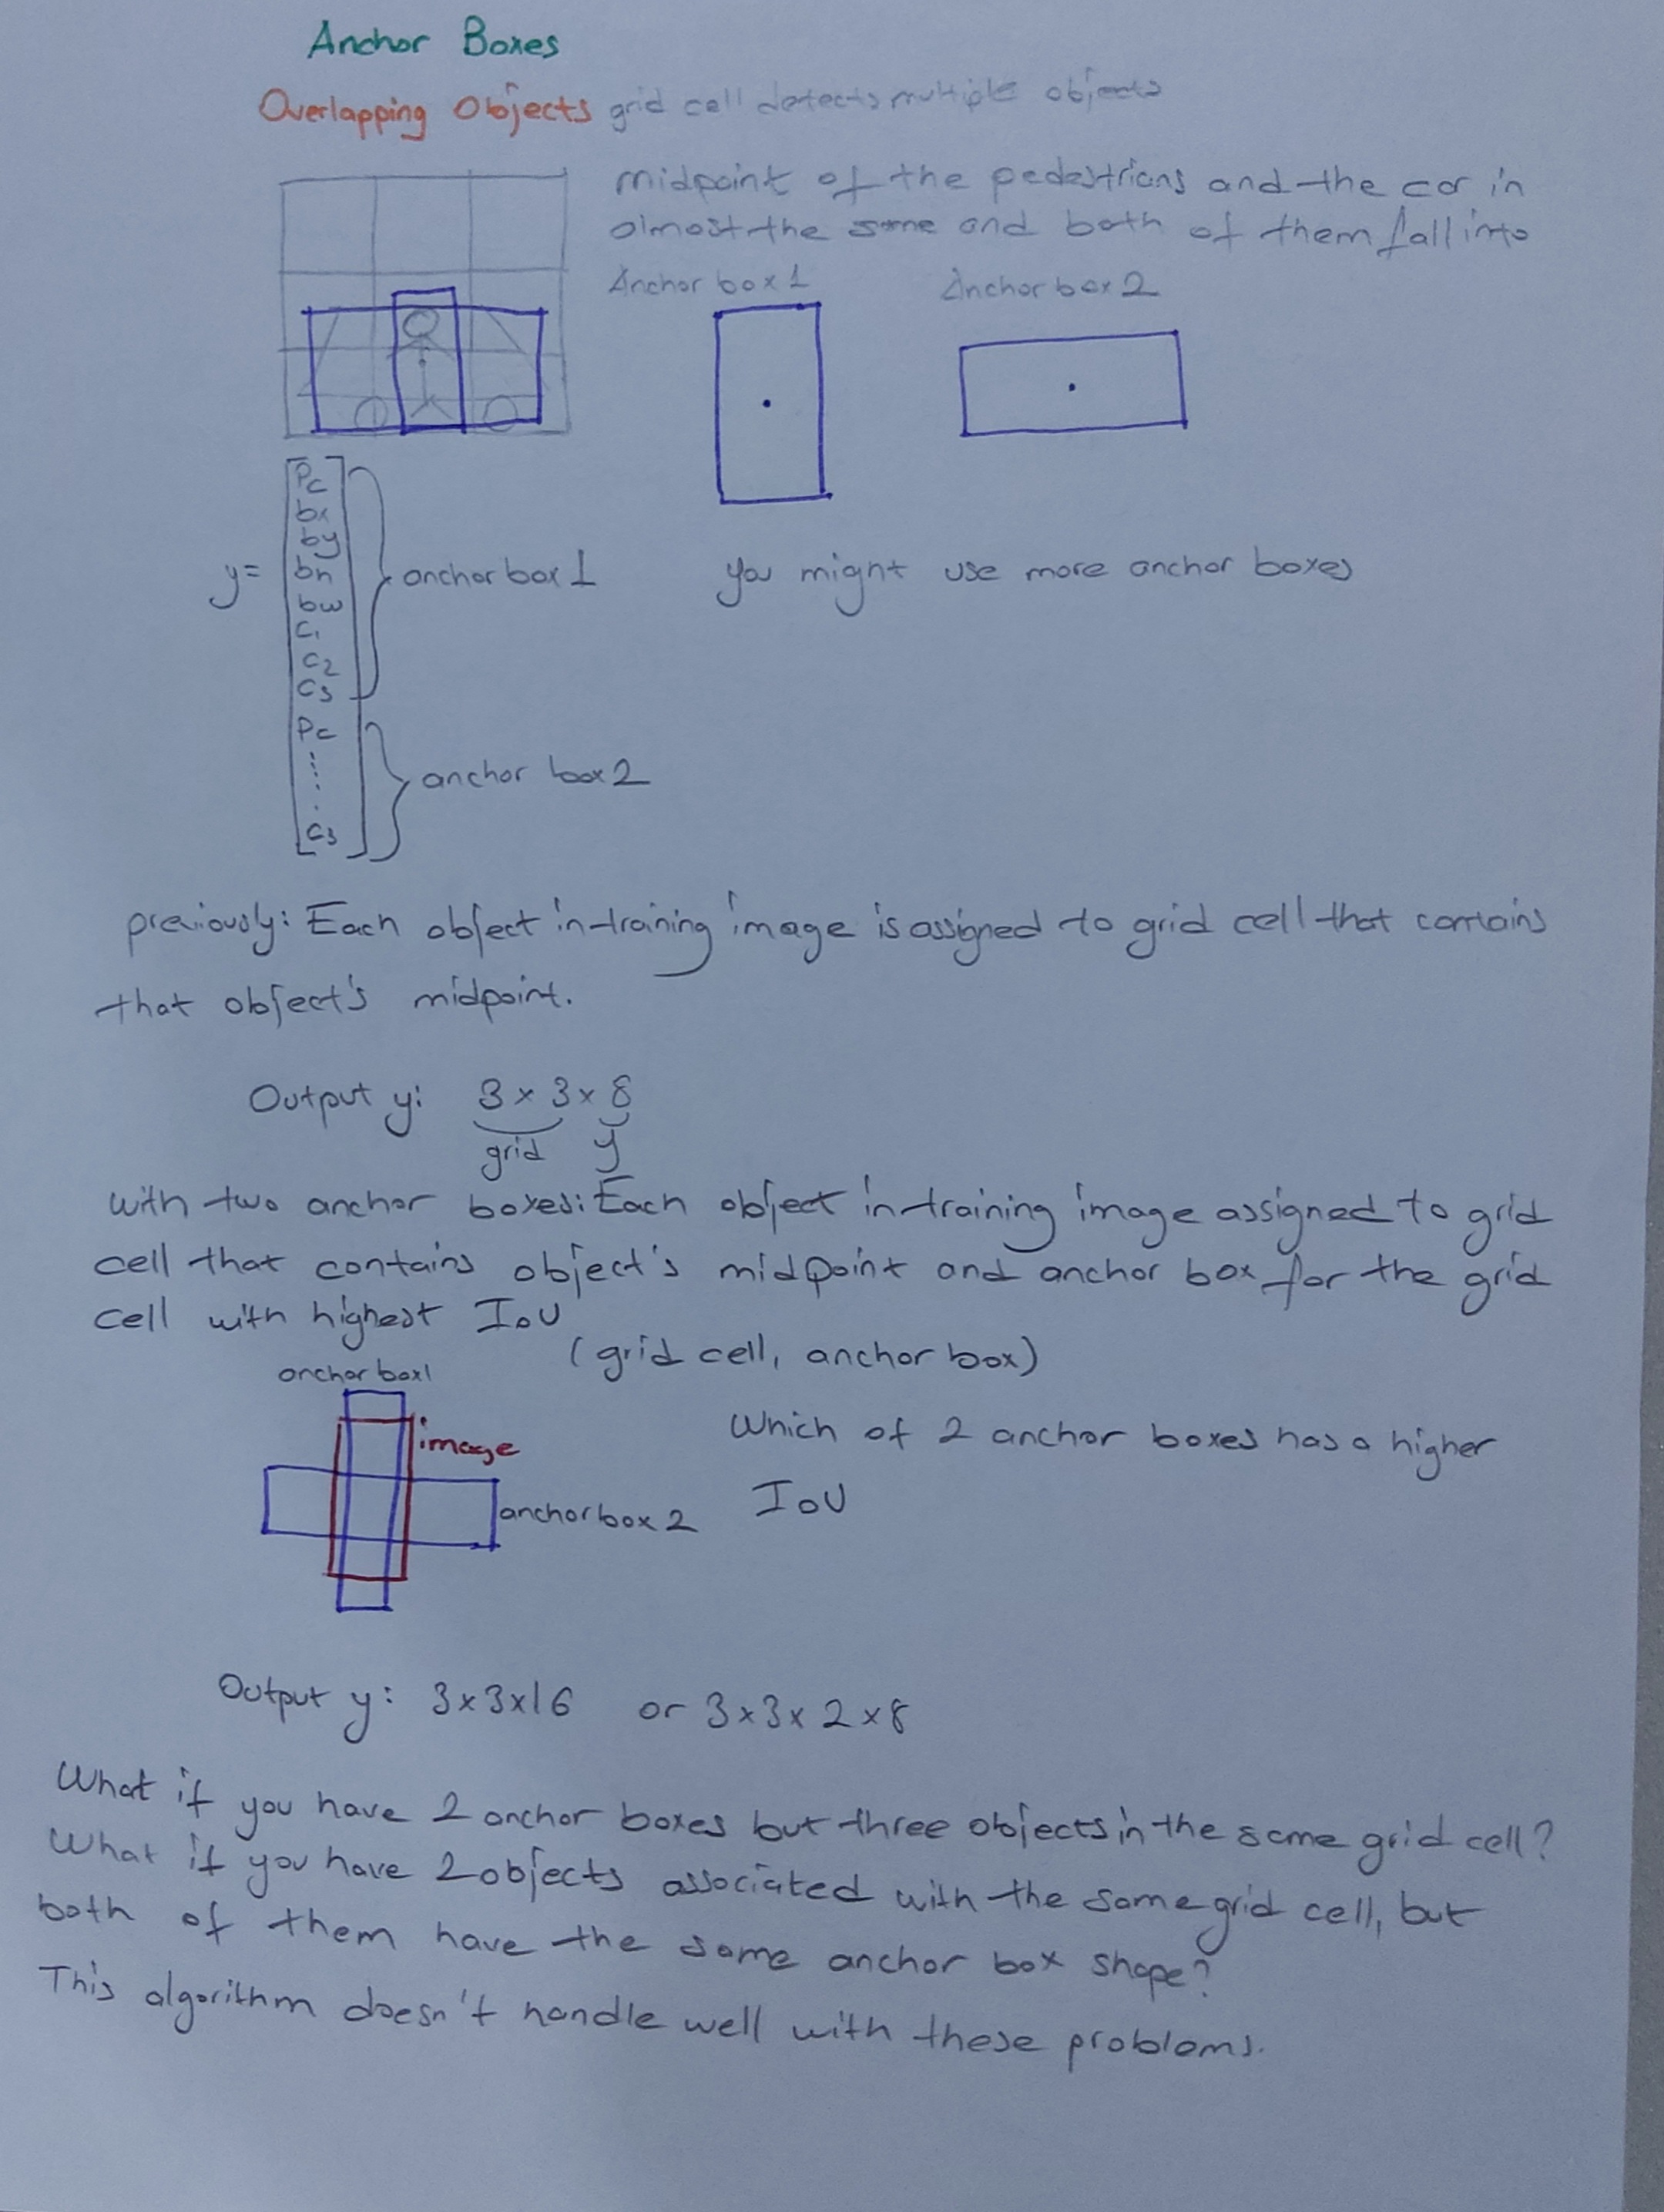 Anchor Boxes
Overlapping Objects grid cell detects multiple objects
midpoint of the pedestrians and the car in
almost the same and both of them fall into
Anchor box 1
Anchor box 2
y=
Pc
bx
by
bh
bw
C1
C2
C3
Pc
.....
.
C3
anchor box 1
you might use more anchor boxes
anchor box 2
previously: Each object in training image is assigned to grid cell that contains
that object's midpoint.
Output y: 3 x 3 x 8
grid y
with two anchor boxes: Each object in training image assigned to grid
cell that contains object's midpoint and anchor box for the grid
cell with highest IoU
(grid cell, anchor box)
anchor box1
image
Which of 2 anchor boxes has a higher
IoU
anchor box 2
Output y: 3x3x16 or 3x3x2x8
What if you have 2 anchor boxes but three objects in the same grid cell?
What if you have 2 objects associated with the same grid cell, but
both of them have the same anchor box shape?
This algorithm doesn't handle well with these problems.